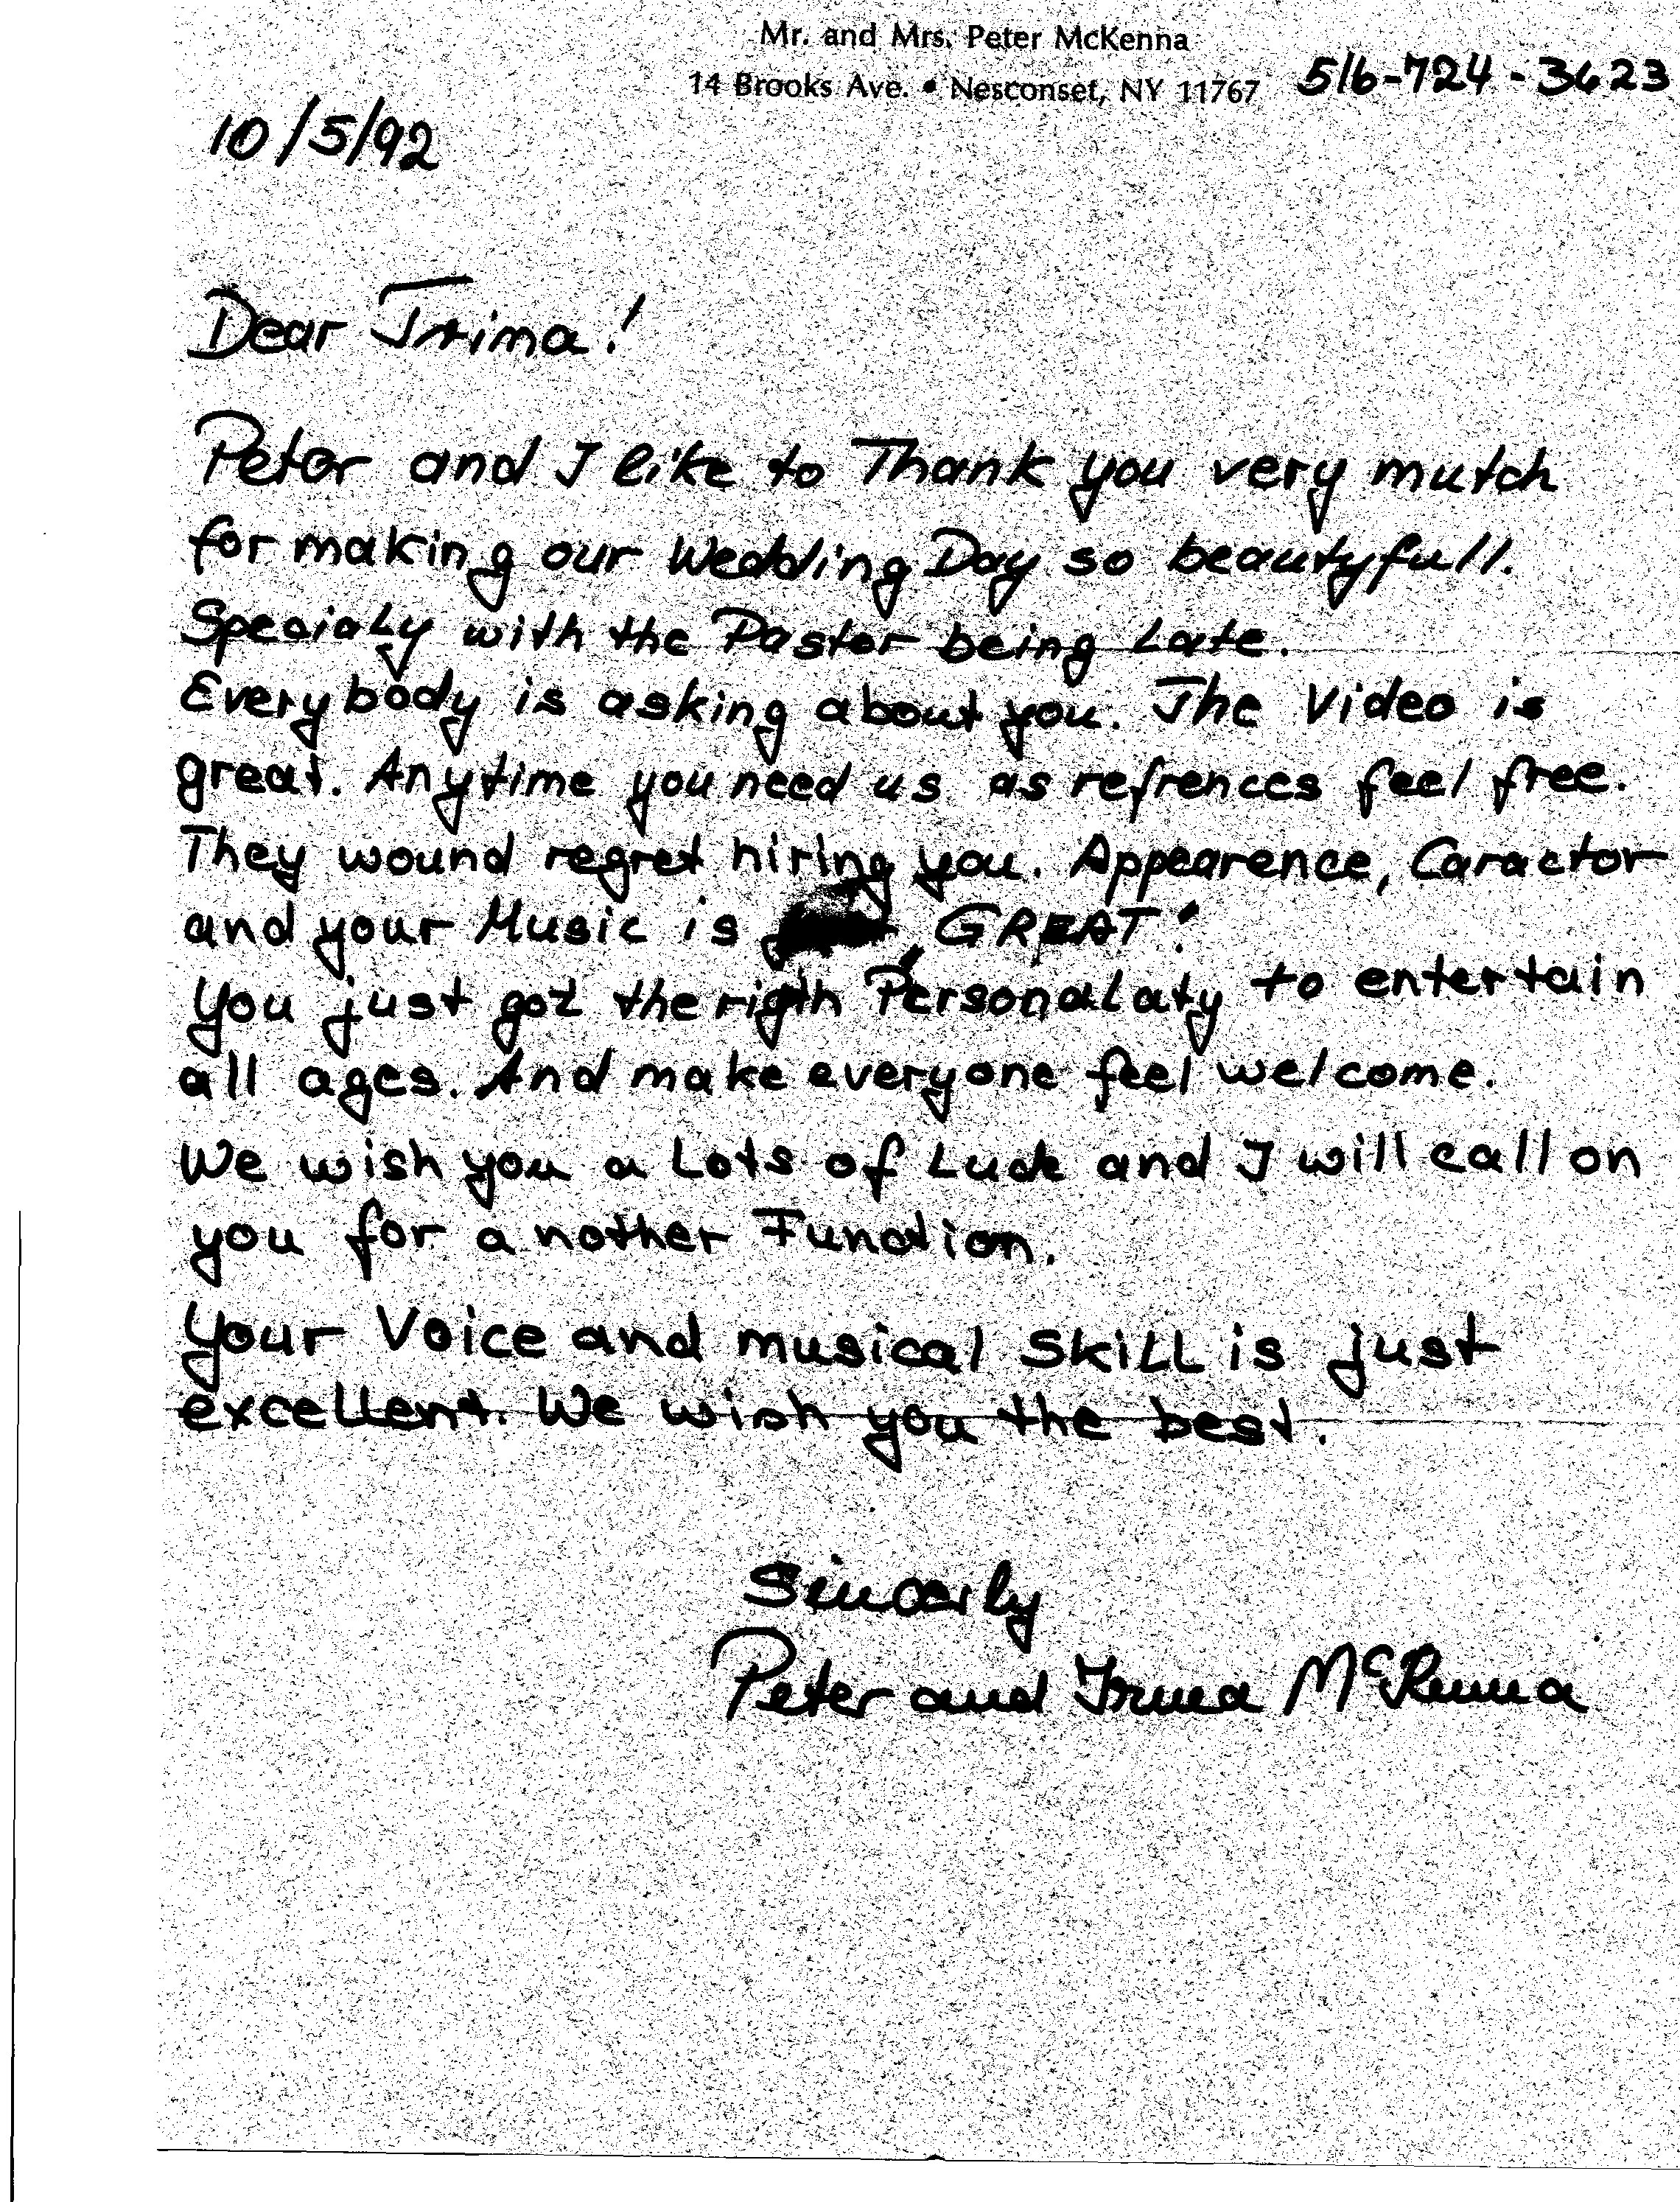 Mr. and Mrs. Peter McKenna
14 Brooks Ave. • Nesconset, NY 11767 516-724-3623
10/5/92
Dear Trima!
Peter and I like to Thank you very mutch
for making our Wedding Day so beautyfull.
Specialy with the Pastor being Late.
Every body is asking about you. The Video is
great. Anytime you need us as refrences feel free.
They wound regret hiring you. Appearence, Caractor
and your Music is GREAT!
You just got the rigth Personalaty to entertain
all ages. And make everyone feel welcome.
We wish you a Lots of Luck and I will call on
you for a nother Function.
Your Voice and musical Skill is just
excellent. We wish you the best.
Sincerly
Peter and Irma McKenna